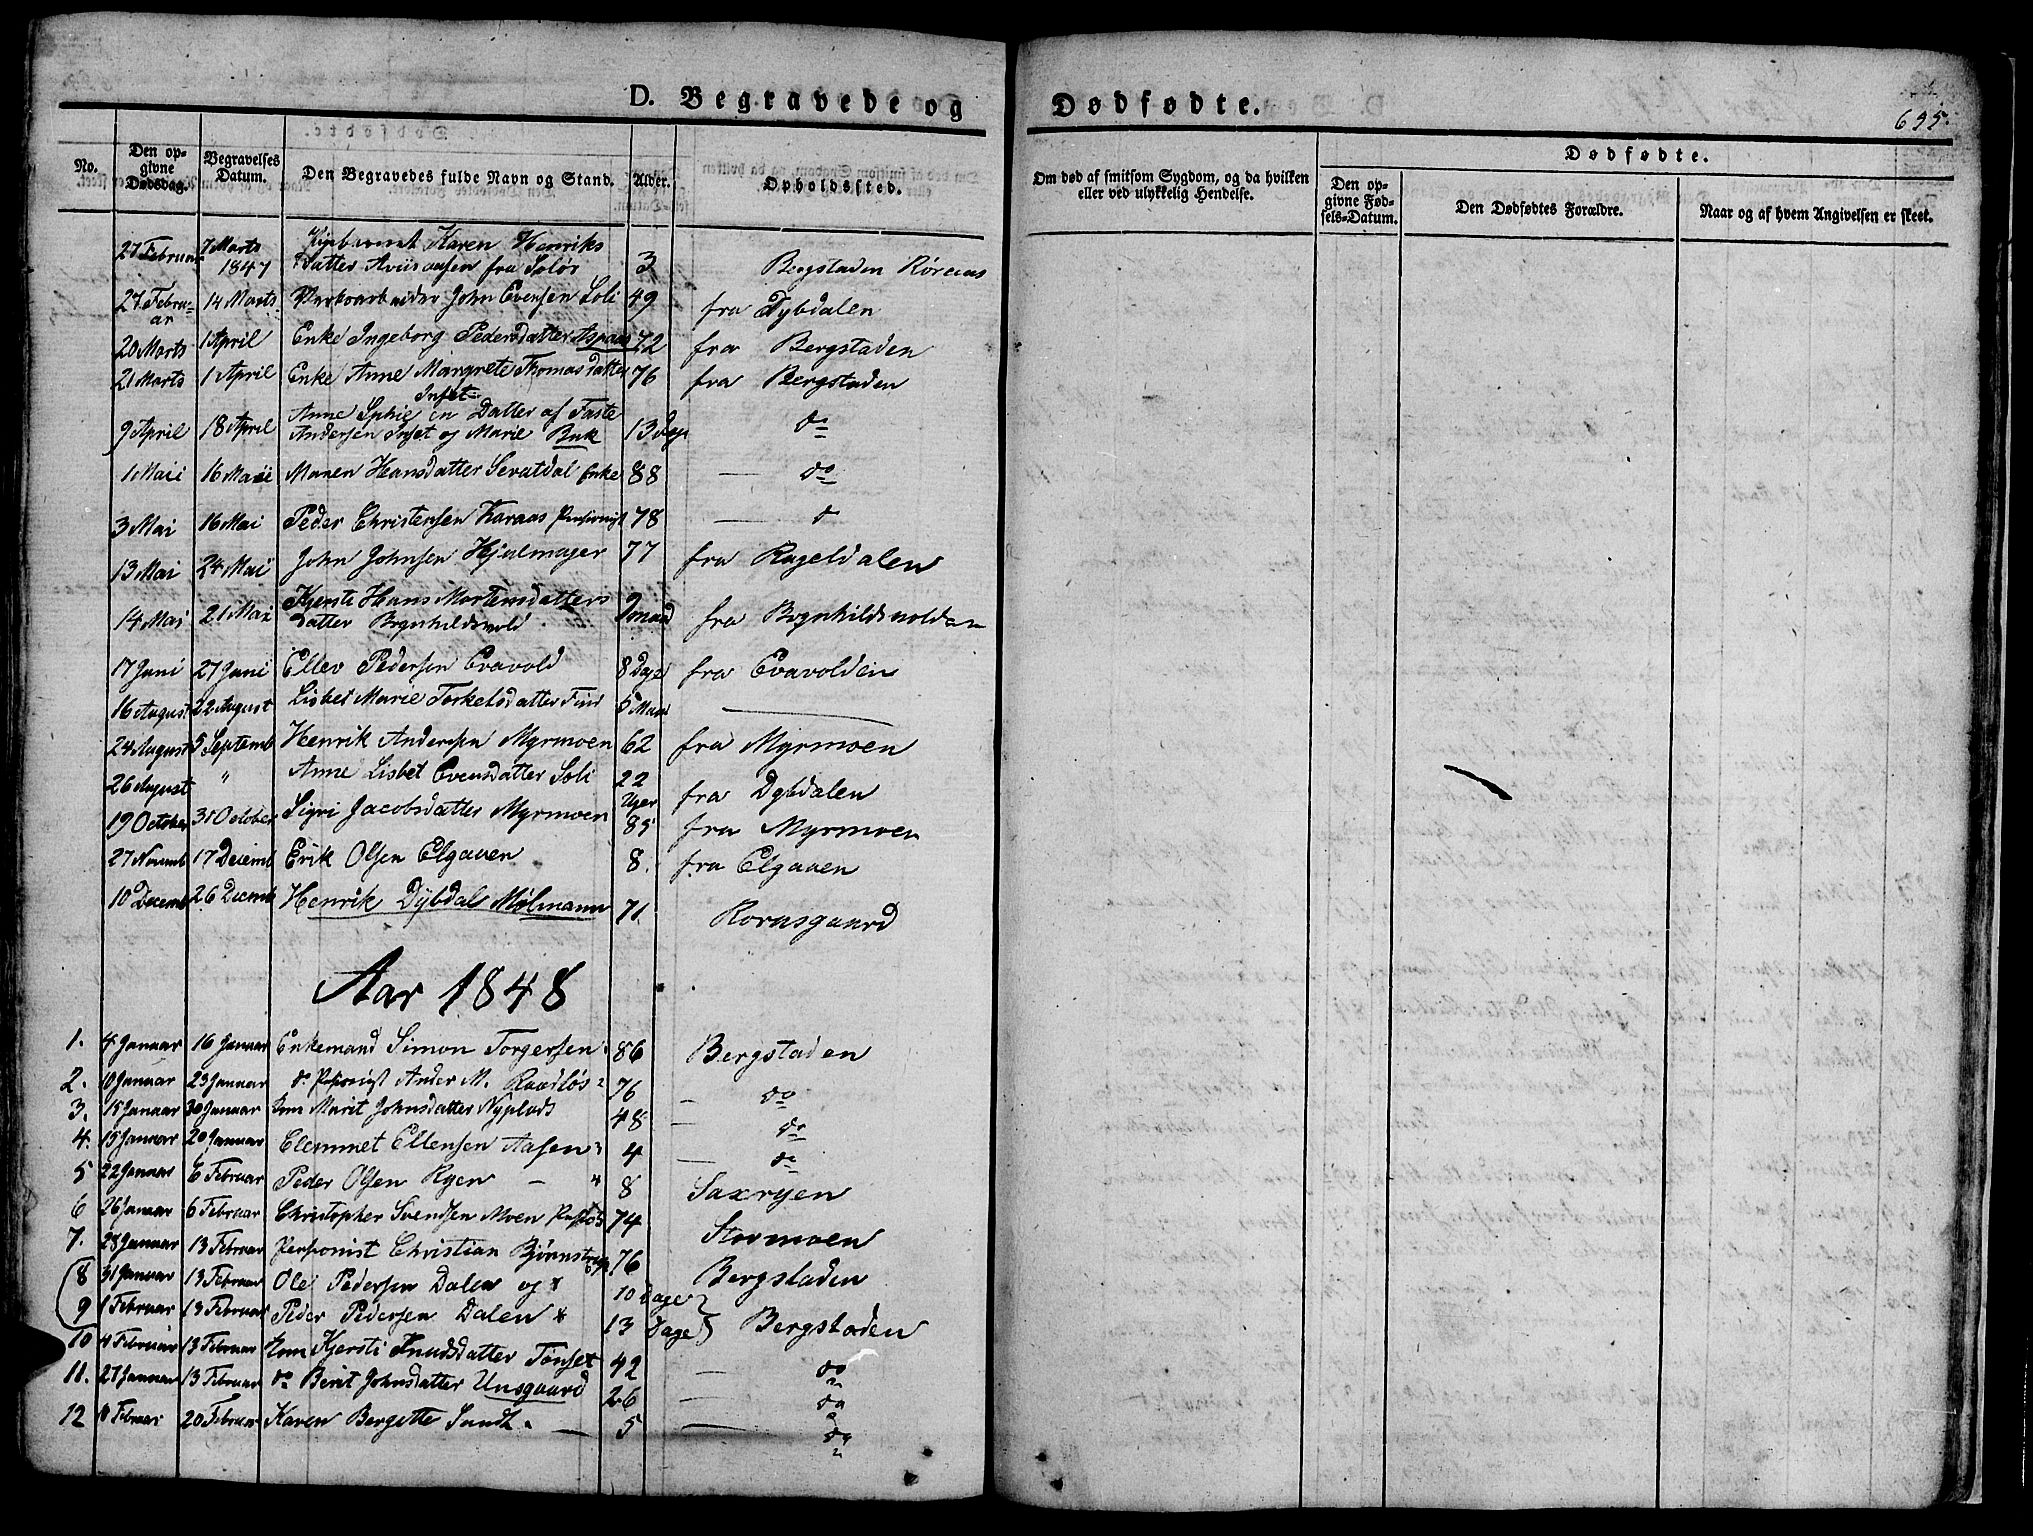 D. Begravede og Dødfødte.
695.
No. Den opgivne Dødsdag. Begravelses Datum. Den Begravedes fulde Navn og Stand. Alder. Opholdssted.
Om død af smitsom Sygdom, og da hvilken eller ved ulykkelig Hendelse.
Dødfødte.
Den opgivne Fødsels-Datum. Den Dødfødtes Forældre. Naar og af hvem Angivelsen er skeet.
27 Februar 7 Marts 1847 Karen Henriks
Datter fra Solør 3 Bergstaden Røraas
27 Februar 14 Marts John Evensen Soli 49 fra Dybdalen
20 Marts 1 April Enke Ingeborg Pedersdatter Aspaas 72 fra Bergstaden
21 Marts 1 April Enke Anne Margrete Thomasdatter 76 fra Bergstaden
Inset
9 April 18 April Anne Sophie en Datter af Faste
Andersen Inset og Marie Buk 13 Dage do
1 Maii 16 Maii Maren Hansdatter Sevatdal Enke 88 — do
3 Mai 16 Mai Peder Christensen Karaas Pensionist 78 — do
13 Mai 24 Mai John Johnsen Hjulmager 77 fra Rugeldalen
14 Mai 21 Mai Kjersti Hans Mortensdatters
Datter Brynhildsvold 9 maaned fra Brynhildsvolden
17 Juni 27 Juni Ellev Pedersen Evavold 8 Dage fra Evavolden
16 August 22 August Lisbet Marie Torkelsdatter Find 5 Maan —
24 August 5 Septemb Henrik Andersen Myrmoen 62 fra Myrmoen
26 August " Anne Lisbet Evensdatter Soli 22 Uger fra Dybdalen
19 October 31 October Sigri Jacobsdatter Myrmoen 85 fra Myrmoen
27 Novemb 17 Decemb Erik Olsen Elgaaen 8. fra Elgaaen
10 Decemb 26 Decemb Henrik Dybdal Mølmann 71 Kornsgaard
Aar 1848
1. 4 Januar 16 Januar Enkemand Simon Torgersen 86 Bergstaden
2. 10 Januar 23 Januar do Pensionist Ander M. Raadløs 76 – do
3. 15 Januar 30 Januar Kone Marit Johnsdatter Nyplads 48 – do
4. 15 Januar 20 Januar Clemmet Ellensen Aasen 4 — do
5 22 Januar 6 Februar Peder Olsen Ryen – " 8 Saxryen
6 26 Januar 6 Februar Christopher Svendsen Moen 74 Stormoen
7. 28 Januar 13 Februar Pensionist Christian Bjørnstrup 76 Bergstaden
8 31 Januar 13 Februar Ole Pedersen Dalen og * 10 Dage
9 1 Februar 13 Februar Peder Pedersen Dalen * 13 Dage Bergstaden
10 4 Februar 13 Februar Kone Kjersti Knudsdatter Tønset 42 – do
11. 27 Januar 13 Februar do Berit Johnsdatter Unsgaard 26 – do
12 8 Februar 20 Februar Karen Bergette Sundt. — 5 — do